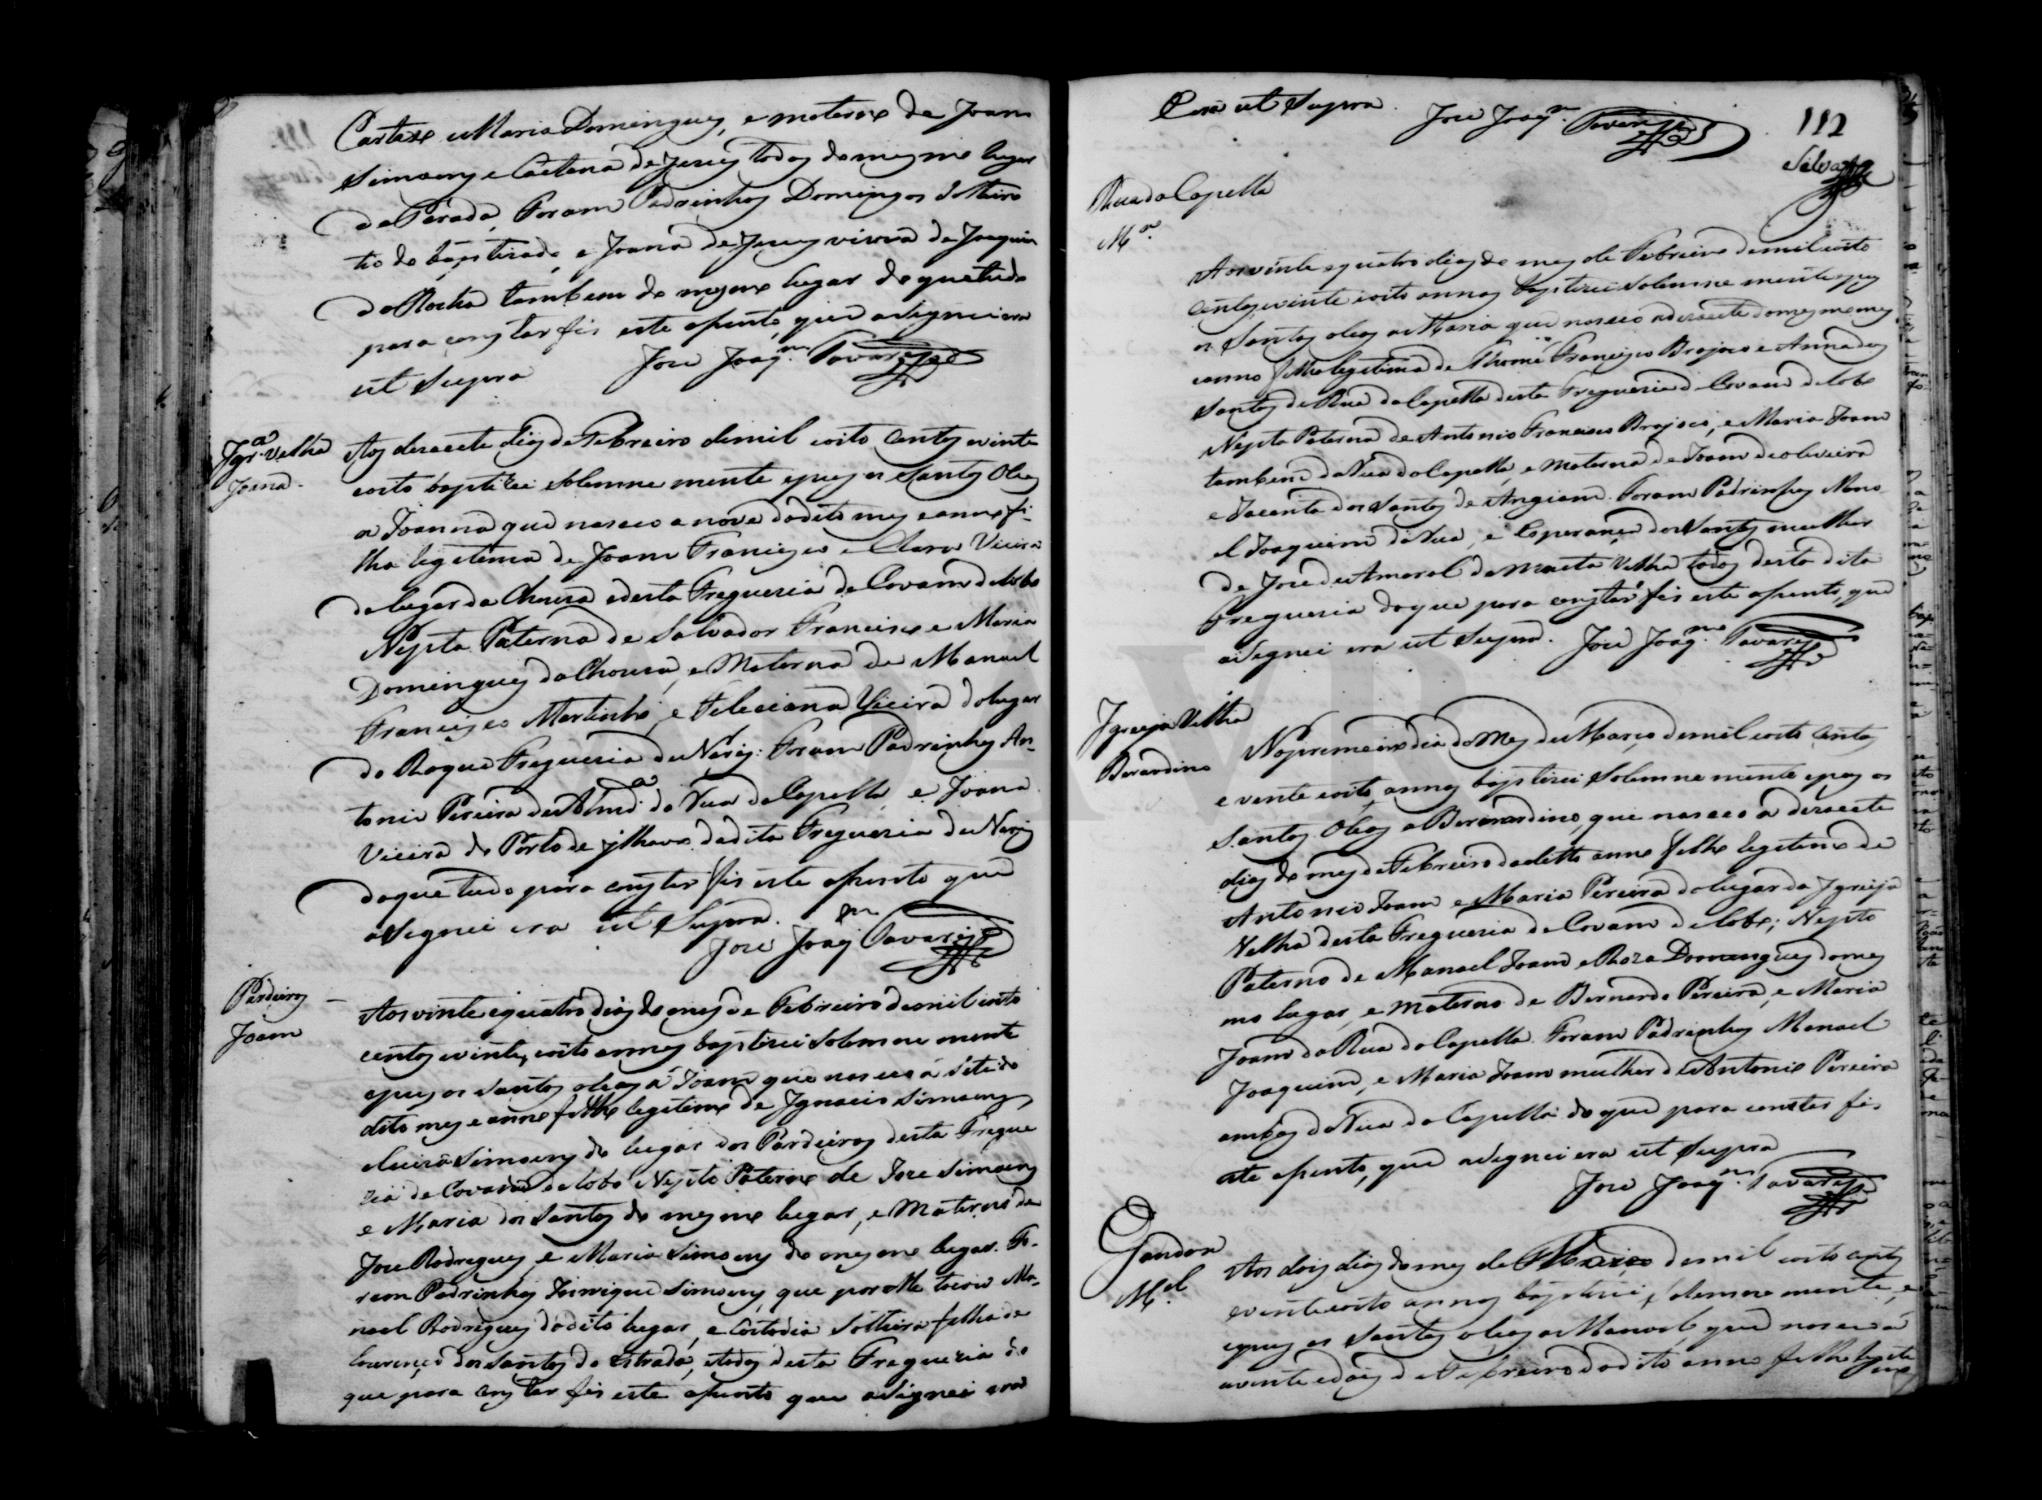 Cartaxo e Maria Domingues, e materno de Joam
Simoens e Caetana de Jesus todos do mesmo lugar
da Parada, Foram Padrinhos Domingos Solteiro
tio do baptizado, e Joana de Jesus viuva de Joaquim
da Rocha tambem do mesmo lugar do que tudo
para constar fis este asento, que asignei era
ut Supra Jose Joaqm Tavares
Igra Velha
Joana
Aos desacete dias de Febreiro de mil oito centos e vinte
e oito baptizei solemne mente e pus os Santos Oleos
a Joanna que nasceo a nove do dito mes e anno fi-
lha legitima de Joam Francisco e Clara Vieira
do lugar da Chousa desta Freguezia de Covam do lobo
Nepta Paterna de Salvador Francisco e Maria
Domingues da Chousa, e Materna de Manoel
Francisco Martinho, e Feleciana Vieira do lugar
do Roque Freguezia de Nariz: Foram Padrinhos An-
tonio Pereira de Almda da Rua da Capella, e Joana
Vieira do Porto de Ilhavo da dita Freguezia de Nariz
do que tudo para constar fis este asento que
asignei era ut Supra.
Jose Joaqm Tavares
Pardeiros
Joam
Aos vinte e quatro dias do mes de Febreiro de mil oito
centos e vinte, e oito annos baptizei solemne mente
e pus os Santos oleos a Joam que nasceo a sete do
dito mes e anno filho legitimo de Ignacio Simoens,
e Luiza Simoens do lugar dos Pardeiros desta Fregue
zia de Covam do lobo Nepto Paterno de Jose Simoens
e Maria dos Santos do mesmo lugar, e Materno de
Jose Rodrigues e Maria Simoens do mesmo lugar. Fo-
ram Padrinhos Henrique Simoens, que por elle tocou Ma-
noel Rodrigues do dito lugar, e Custodia Solteira filha de
Lourenço dos Santos da Estrada, e todos desta Freguezia do
que para constar fis este asento que asignei era
Era ut Supra. Jose Joaqm Tavares
112
Silva
Rua da Capella
Ma
Aos vinte e quatro dias do mes de Febreiro de mil oito
centos e vinte e oito annos baptizei solemne mente e pus
os Santos oleos a Maria que nasceo a desacete do mesmo mes
e anno filha legitima de Thomé Francisco Brojoco e Anna dos
Santos da Rua da Capella desta Freguezia de Covam do lobo
Nepta Paterna de Antonio Francisco Brojoco, e Maria Joam
tambem da Rua da Capella, e materna de Joam de oliveira
e Jacinta dos Santos de Angiam. Foram Padrinhos Mano-
el Joaquim da Rua, e Esperança dos Santos mulher
de Jose de Amaral da Moita Velha todos desta dita
Freguezia do que para constar fis este asento, que
asignei era ut Supra. Jose Joaqm Tavares
Igreja Velha
Berardino
No premeiro dia do Mes de Março de mil oito centos
e vente e oito annos baptizei solemne mente e pus os
Santos Oleos a Berardino, que nasceo a desacete
dias do mes de Febreiro do ditto anno filho legitimo de
Antonio Joam e Maria Pereira do lugar da Igreja
Velha desta Freguezia de Covam do lobo; Nepto
Paterno de Manoel Joam e Roza Domingues do mes
mo lugar, e materno de Bernardo Pereira, e Maria
Joam da Rua da Capella. Foram Padrinhos Manoel
Joaquim, e Maria Joam mulher de Antonio Pereira
ambos da Rua da Capella do que para constar fis
este asento, que asignei era ut Supra
Jose Joaqm Tavares
Gandara
Mel
Aos dois dias do mes de Março de mil oito centos
e vinte e oito annos baptizei, solemne mente, e
e pus os Santos oleos a Manoel, que nasceo a
vinte e dois de Febreiro do dito anno filho legiti
mo